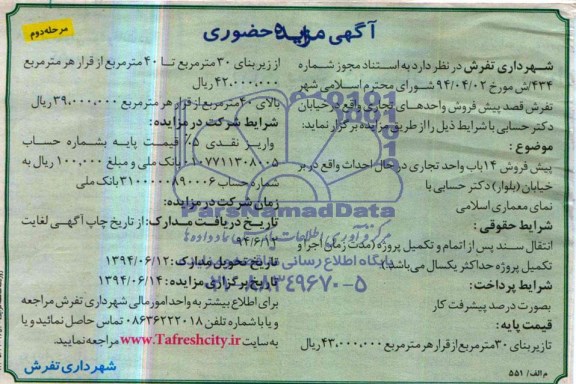 آگهی مزایده حضوری
مرحله دوم
شهرداری تفرش در نظر دارد به استناد مجوز شماره
۴۳۴/ش مورخ ۹۴/۰۴/۰۲ شورای محترم اسلامی شهر
تفرش قصد پیش فروش واحدهای تجاری واقع در خیابان
دکتر حسابی با شرایط ذیل را از طریق مزایده برگزار نماید:
موضوع :
پیش فروش ۱۴ باب واحد تجاری در حال احداث واقع در بر
خیابان (بلوار) دکتر حسابی با
نمای معماری اسلامی
شرایط حقوقی :
انتقال سند پس از اتمام و تکمیل پروژه (مدت زمان اجرا و
تکمیل پروژه حداکثر یکسال می باشد)
شرایط پرداخت:
بصورت درصد پیشرفت کار
قیمت پایه:
تا زیربنای ۳۰ مترمربع از قرار هر مترمربع ۴۳،۰۰۰،۰۰۰ ریال
از زیربنای ۳۰ مترمربع تا ۴۰ مترمربع از قرار هر مترمربع
۴۲،۰۰۰،۰۰۰ ریال
بالای ۴۰ مترمربع از قرار هر مترمربع ۳۹،۰۰۰،۰۰۰ ریال
شرایط شرکت در مزایده:
واریز نقدی ۵٪ قیمت پایه بشماره حساب
۰۱۰۷۷۱۱۳۰۸۰۰۵ بانک ملی و مبلغ ۱۰۰،۰۰۰ ریال به
شماره حساب ۳۱۰۰۰۰۰۸۹۰۰۰۶ بانک ملی
زمان شرکت در مزایده:
تاریخ دریافت مدارک: از تاریخ چاپ آگهی لغایت
۹۴/۶/۱۲
تاریخ تحویل مدارک: ۱۳۹۴/۰۶/۱۲
تاریخ برگزاری مزایده: ۱۳۹۴/۰۶/۱۴
برای اطلاع بیشتر به واحد امور مالی شهرداری تفرش مراجعه
و یا با شماره تلفن ۰۸۶۳۶۲۲۲۰۱۸ تماس حاصل نمائید و یا
به سایت www.Tafreshcity.ir مراجعه نمایید.
شهرداری تفرش
م الف/ ۵۵۱
ParsNamadData
پایگاه اطلاع رسانی
۰۲۱-۸۸۳۴۹۶۷۰-۵